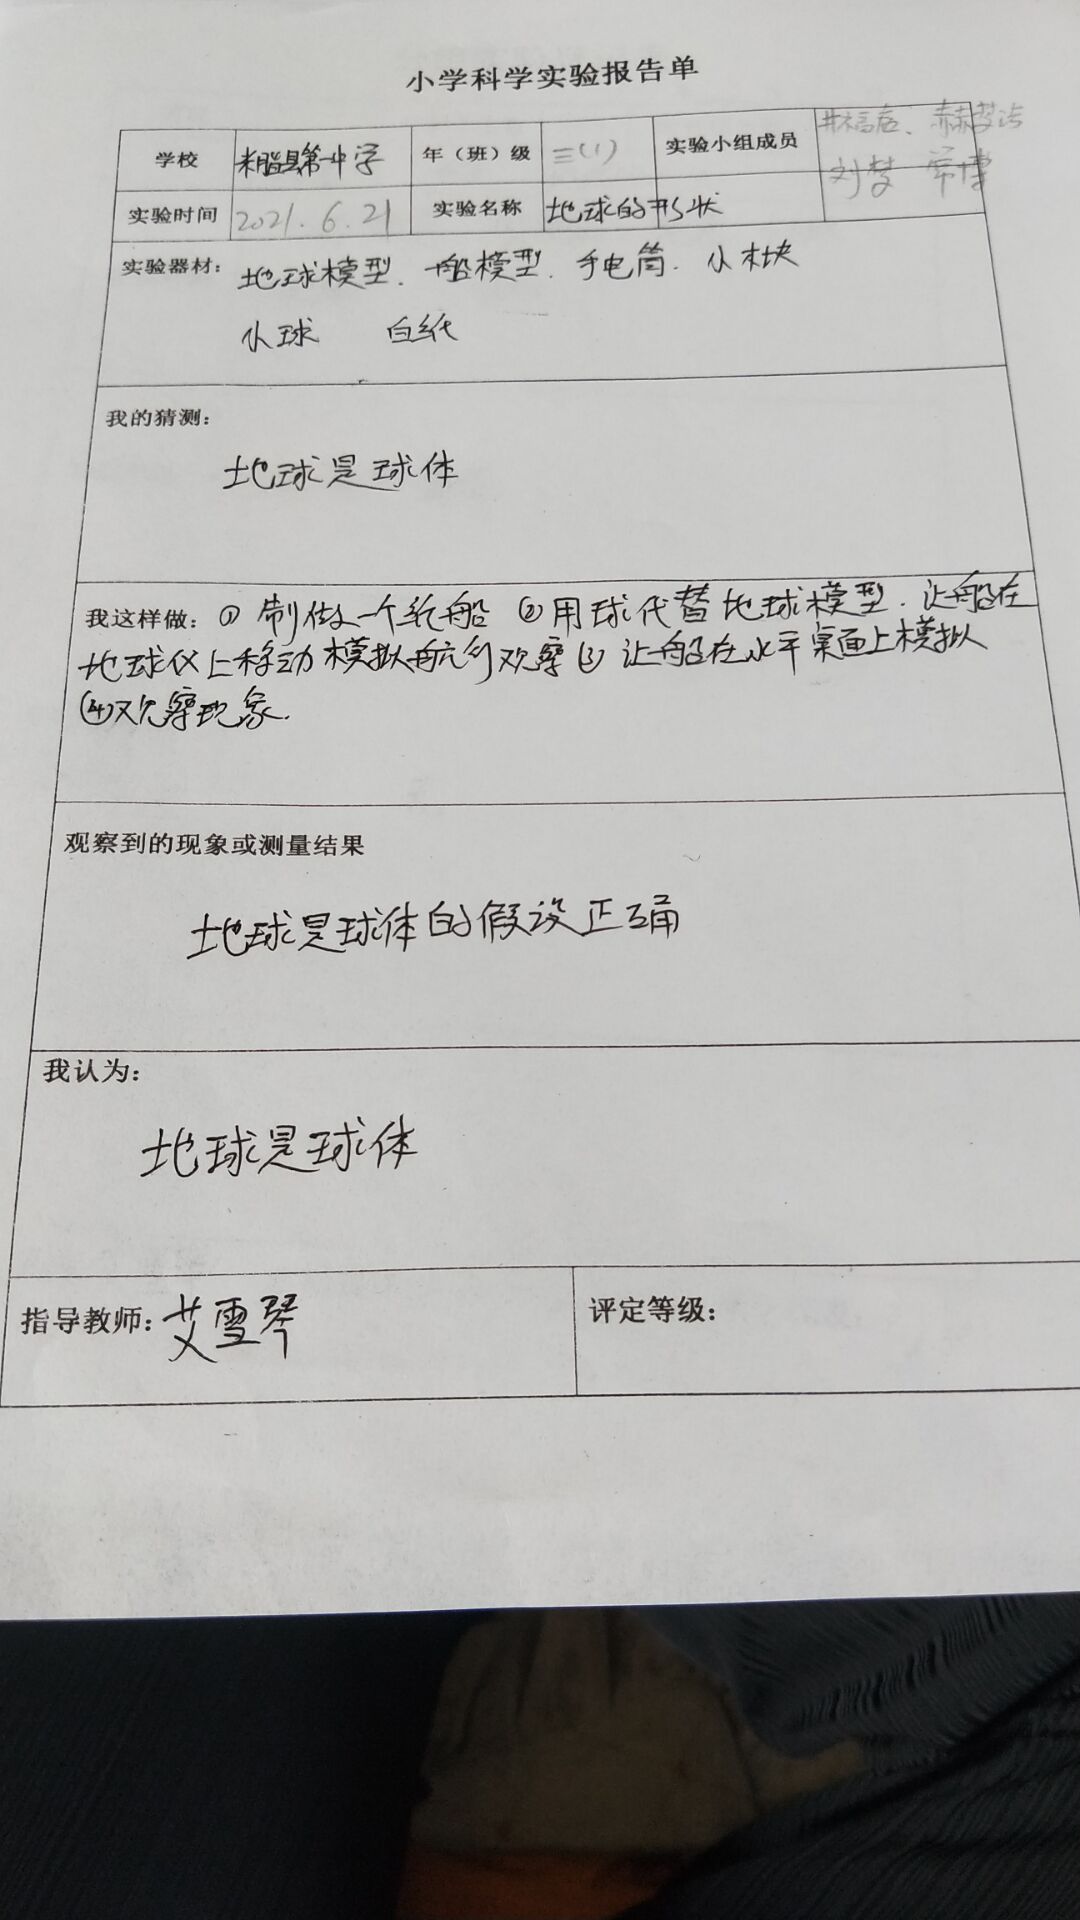 小学科学实验报告单
学校 米脂县第一中学 年（班）级 三（1） 实验小组成员
刘梦 常博
实验时间 2021.6.21 实验名称 地球的形状
实验器材： 地球模型．船模型．手电筒．小木块
小球 白纸
我的猜测：
地球是球体
我这样做：① 制做一个纸船 ② 用球代替地球模型．让船在
地球仪上移动模拟航行观察 (3) 让船在水平桌面上模拟
(4)观察现象．
观察到的现象或测量结果
地球是球体的假设正确
我认为：
地球是球体
指导教师：艾雪琴 评定等级：